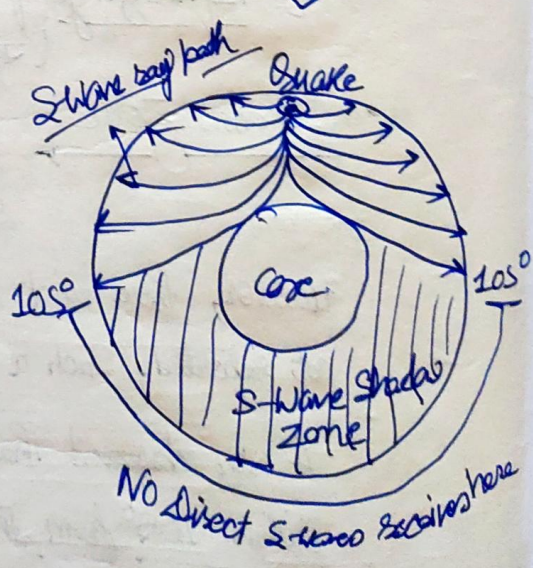 S-Wave ray path
Quake
105°
Core
105°
S-Wave Shadow
Zone
No Direct S-waves receives here